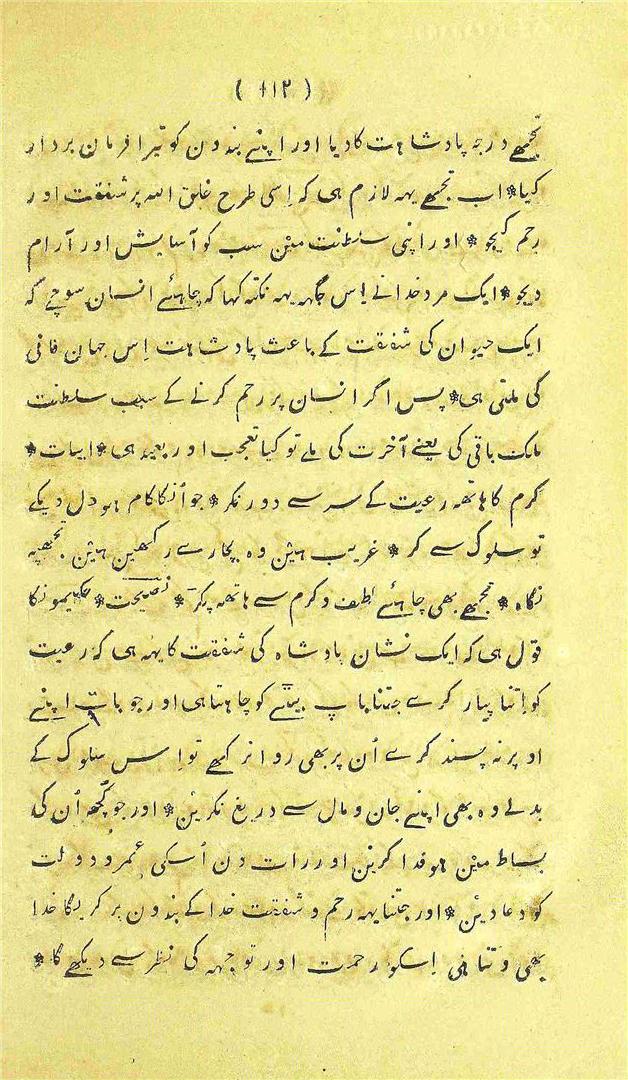 ( ۱۱۲ )
تجھے درجہ پادشاہت کا دیا اور اپنے بندون کو تیرا فرمان بردار
کیا * اب تجھے یہہ لازم ہی کہ اِسی طرح خلق اللہ پر شفقت اور
رحم کیجو * اور اپنی سلطنت مین سب کو آسایش اور آرام
دیجو * ایک مرد خدا نے اِس جگہہ یہہ نکتہ کہا کہ چاہئے انسان سوچے کہ
ایک حیوان کی شفقت کے باعث پادشاہت اِس جہان فانی
کی ملتی ہی * پس اگر انسان پر رحم کرنے کے سبب سلطنت
ملک باقی کی یعنے آخرت کی ملے تو کیا تعجب اور بعید ہی * ابیات *
کرم کا ہاتھہ رعیت کے سر سے دور نکر * جو اُنکا کام ہو دل دیکے
تو سلوک سے کر * غریب ہین وہ بچارے رکھین ہین تجھپہ
نگاہ * تجھے بھی چاہئے لطف و کرم سے ہاتھہ پکڑ * نصیحت * حکیمونکا
قول ہی کہ ایک نشان پادشاہ کی شفقت کا یہہ ہی کہ رعیت
کو اِتنا پیار کرے جتنا باپ بیٹے کو چاہتا ہی اور جو بات اپنے
اوپر نہ پسند کرے اُن پر بھی روا نرکھے تو اِس سلوک کے
بدلے وہ بھی اپنے جان و مال سے دریغ نکرین * اور جو کُچھہ اُن کی
بساط مین ہو فدا کرین اور رات دن اُسکی عُمر و دولت
کو دعا دین * اور جتنا یہہ رحم و شفقت خدا کے بندون پر کریگا خدا
بھی وتنا ہی اِسکو رحمت اور توجہہ کی نظر سے دیکھے گا *